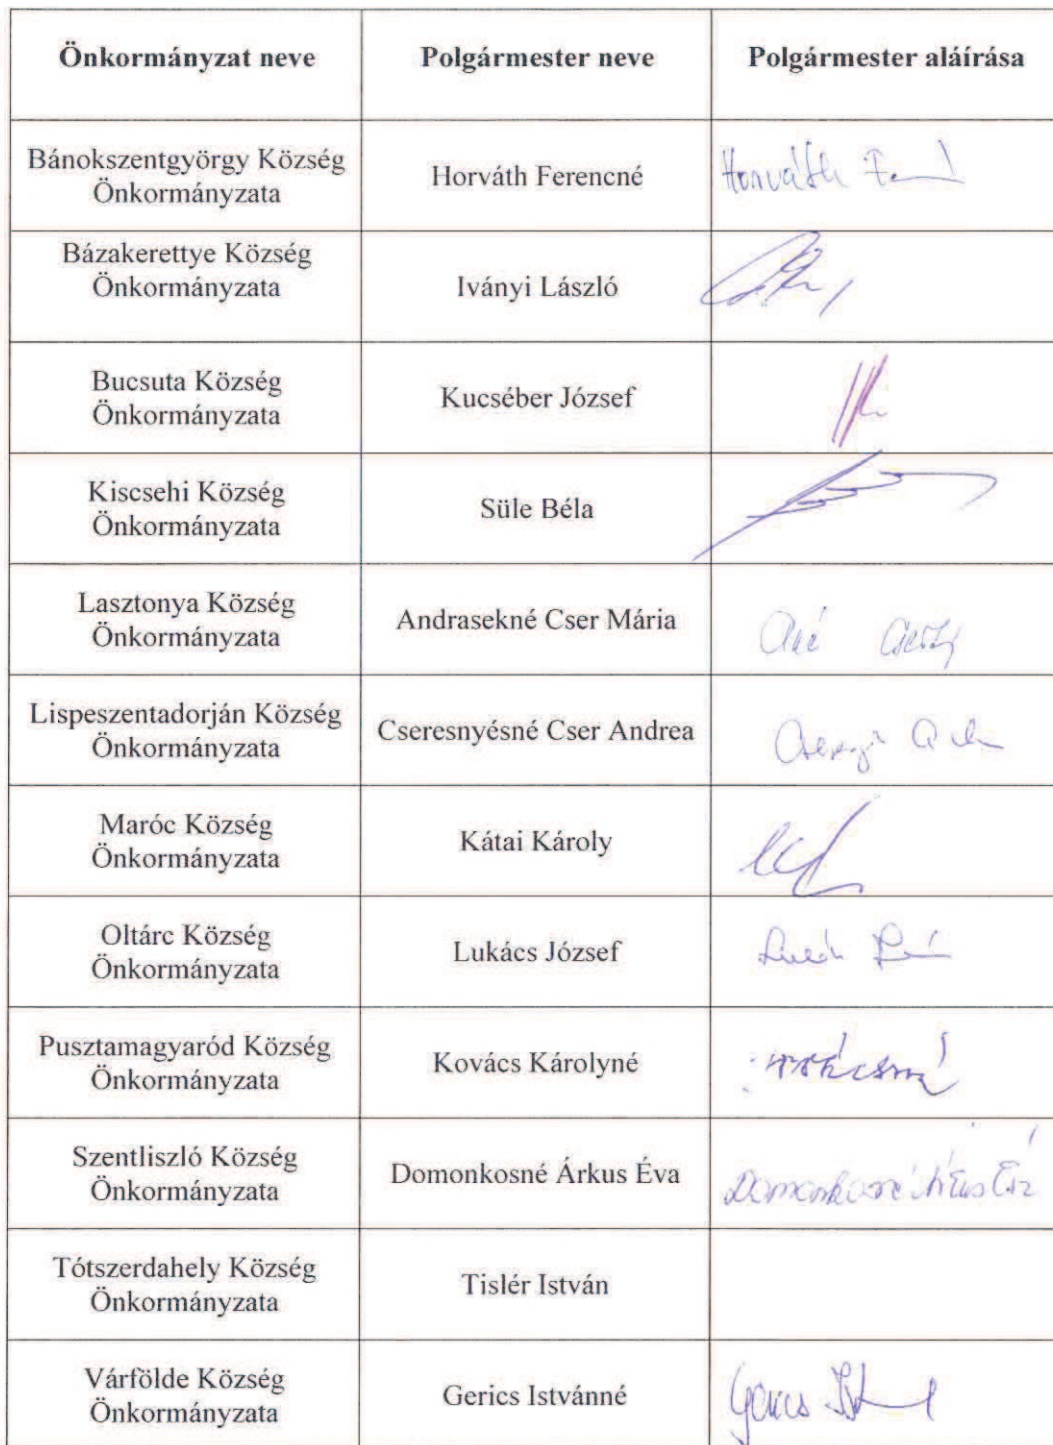 Önkormányzat neve Polgármester neve Polgármester aláírása
Bánokszentgyörgy Község
Önkormányzata
Horváth Ferencné
Horváth
Bázakerettye Község
Önkormányzata
Iványi László
Bucsuta Község
Önkormányzata
Kucséber József
Kiscsehi Község
Önkormányzata
Süle Béla
Lasztonya Község
Önkormányzata
Andrasekné Cser Mária
Lispeszentadorján Község
Önkormányzata
Cseresnyésné Cser Andrea
Maróc Község
Önkormányzata
Kátai Károly
Oltárc Község
Önkormányzata
Lukács József
Pusztamagyaród Község
Önkormányzata
Kovács Károlyné
Szentliszló Község
Önkormányzata
Domonkosné Árkus Éva
Domonkosné Árkus Éva
Tótszerdahely Község
Önkormányzata
Tislér István
Várfölde Község
Önkormányzata
Gerics Istvánné
Gerics